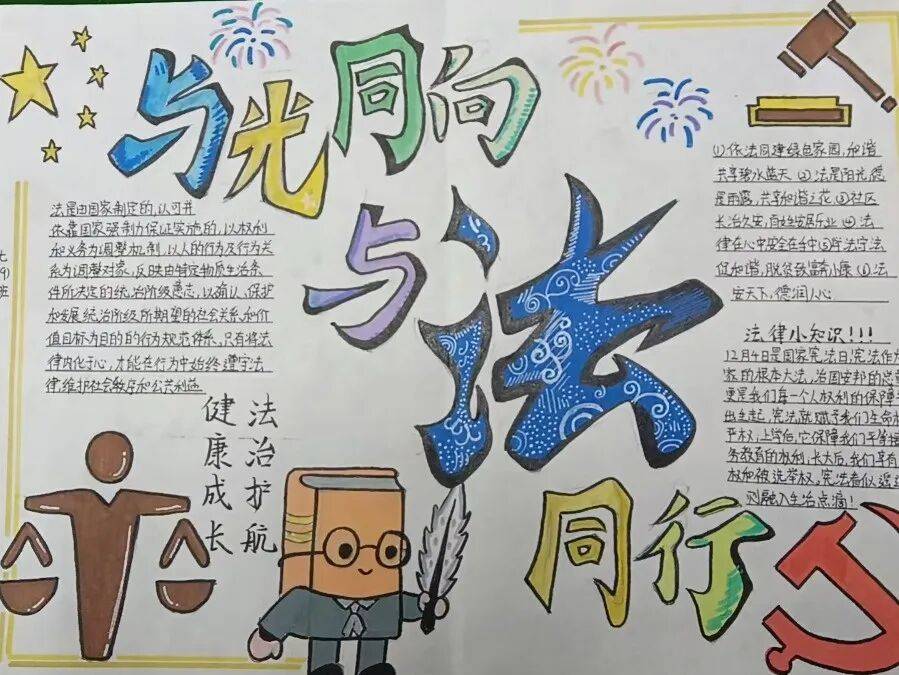 与光同向
与法
同行
法是由国家制定的,认可并
依靠国家强制力保证实施的,以权利
和义务为调整机制,以人的行为及行为关
系为调整对象,反映由特定物质生活条
件所决定的统治阶级意志,以确认、保护
和发展统治阶级所期望的社会关系和价
值目标为目的的行为规范体系,只有将法
律内化于心,才能在行为中始终遵守法
律维护社会秩序和公共利益
法治护航
健康成长
(1)依法同建绿色家园,和谐
共享碧水蓝天 (2)法是阳光,德
是雨露,共享和谐之花 (3)社区
长治久安,百姓安居乐业 (4)法
律在心中安全在手中 (5)学法守法
促和谐,脱贫致富奔小康 (6)法
安天下,德润人心
法律小知识!!!
12月4日是国家宪法日,宪法作为
家的根本大法,治国安邦的总
更是我们每一个人权利的保障
出生起,宪法就赋予我们生命
严权,上学后,它保障我们于
务教育的权利,长大后,我们享有
权和被选举权,宪法看似遥
则融入生活点滴!
九
班